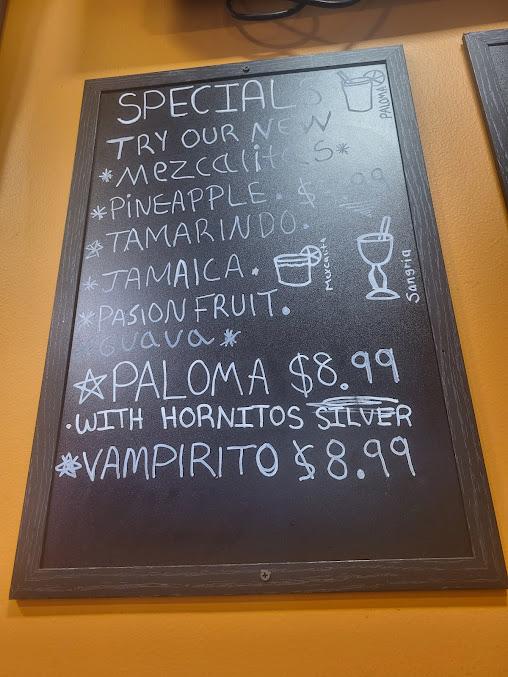 SPECIALS
PALOMA
TRY OUR NEW
*Mezcalitas*
*PINEAPPLE. $ .99
*TAMARINDO.
*JAMAICA.
Mezcalita
Sangria
*PASION FRUIT.
*Guava*
☆PALOMA $8.99
.WITH HORNITOS SILVER
*VAMPIRITO $8.99